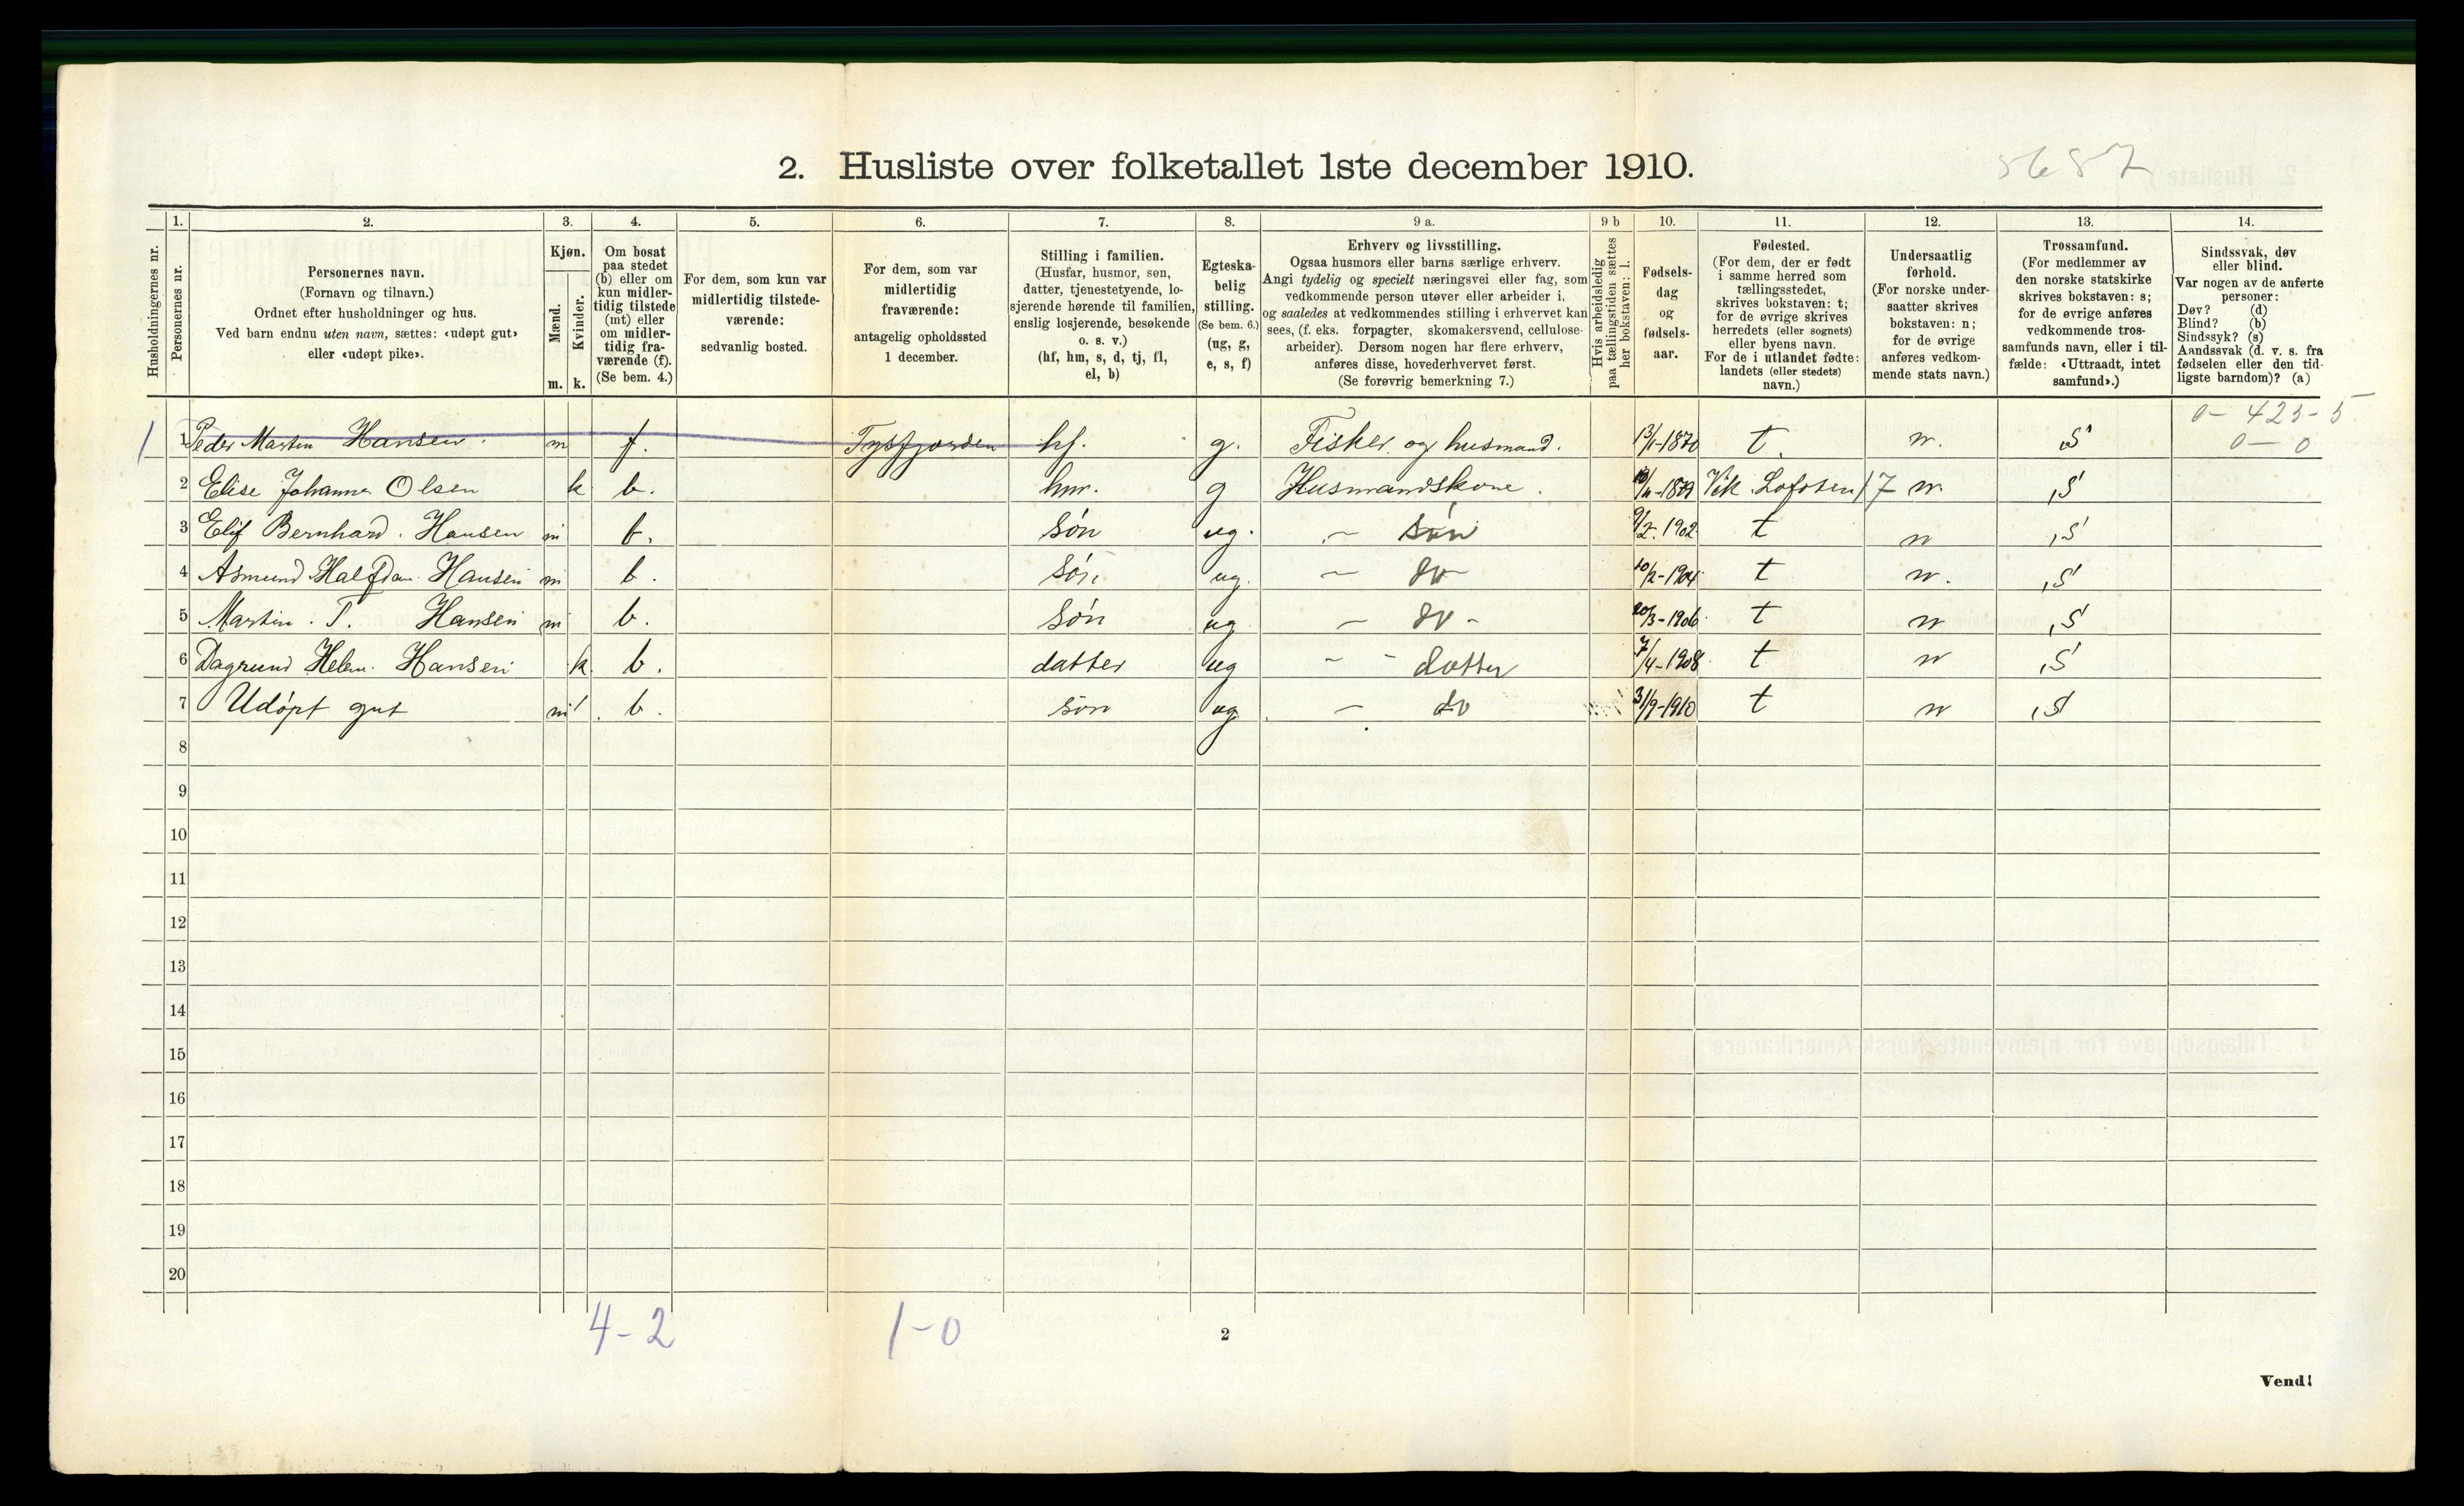 2. Husliste over folketallet 1ste december 1910.
5687
Husholdningernes nr.
1.
Personernes nr.
2.
Personernes navn.
(Fornavn og tilnavn.)
Ordnet efter husholdninger og hus.
Ved barn endnu uten navn, sættes: «udøpt gut»
eller «udøpt pike».
3.
Kjøn.
Mænd.
Kvinder.
m. k.
4.
Om bosat
paa stedet
(b) eller om
kun midler-
tidig tilstede
(mt) eller
om midler-
tidig fra-
værende (f).
(Se bem. 4.)
5.
For dem, som kun var
midlertidig tilstede-
værende:
sedvanlig bosted.
6.
For dem, som var
midlertidig
fraværende:
antagelig opholdssted
1 december.
7.
Stilling i familien.
(Husfar, husmor, søn,
datter, tjenestetyende, lo-
sjerende hørende til familien,
enslig losjerende, besøkende
o. s. v.)
(hf, hm, s, d, tj, fl,
el, b)
8.
Egteska-
belig
stilling.
(Se bem. 6.)
(ug, g,
e, s, f)
9 a.
Erhverv og livsstilling.
Ogsaa husmors eller barns særlige erhverv.
Angi tydelig og specielt næringsvei eller fag, som
vedkommende person utøver eller arbeider i,
og saaledes at vedkommendes stilling i erhvervet kan
sees, (f. eks. forpagter, skomakersvend, cellulose-
arbeider). Dersom nogen har flere erhverv,
anføres disse, hovederhvervet først.
(Se forøvrig bemerkning 7.)
9 b
Hvis arbeidsledig
paa tællingstiden sættes
her bokstaven: l.
10.
Fødsels-
dag
og
fødsels-
aar.
11.
Fødested.
(For dem, der er født
i samme herred som
tællingsstedet,
skrives bokstaven: t;
for de øvrige skrives
herredets (eller sognets)
eller byens navn.
For de i utlandet fødte:
landets (eller stedets)
navn.)
12.
Undersaatlig
forhold.
(For norske under-
saatter skrives
bokstaven: n;
for de øvrige
anføres vedkom-
mende stats navn.)
13.
Trossamfund.
(For medlemmer av
den norske statskirke
skrives bokstaven: s;
for de øvrige anføres
vedkommende tros-
samfunds navn, eller i til-
fælde: «Uttraadt, intet
samfund».)
14.
Sindssvak, døv
eller blind.
Var nogen av de anførte
personer:
Døv? (d)
Blind? (b)
Sindssyk? (s)
Aandssvak (d. v. s. fra
fødselen eller den tid-
ligste barndom)? (a)
0 - 425 - 5
0 - 0
1 1 Peder Martin Hansen. m f. Tysfjorden hf. g. Fisker og husmand. 13/1-1870 t. n. S
2 Elise Johanna Olsen k b. hm. g Husmandskone. /11-1879 Vik Lofoten 17 n. S
3 Elif Bernhard. Hansen m b. søn ug. - søn 9/2-1902 t n S
4 Asmund Halfdan Hansen m b. søn ug. - do - 10/2-1904 t n. S
5 Martin. T. Hansen m b. søn ug - do - 20/3-1906 t n S
6 Dagrund Helen. Hansen k. b. datter ug - - datter 7/4-1908. t n S
7 Udøpt gut m b. søn ug. - do 3/9-1910 t n S
8
9
10
11
12
13
14
15
16
17
18
19
20
4-2 1-0
2
Vend!